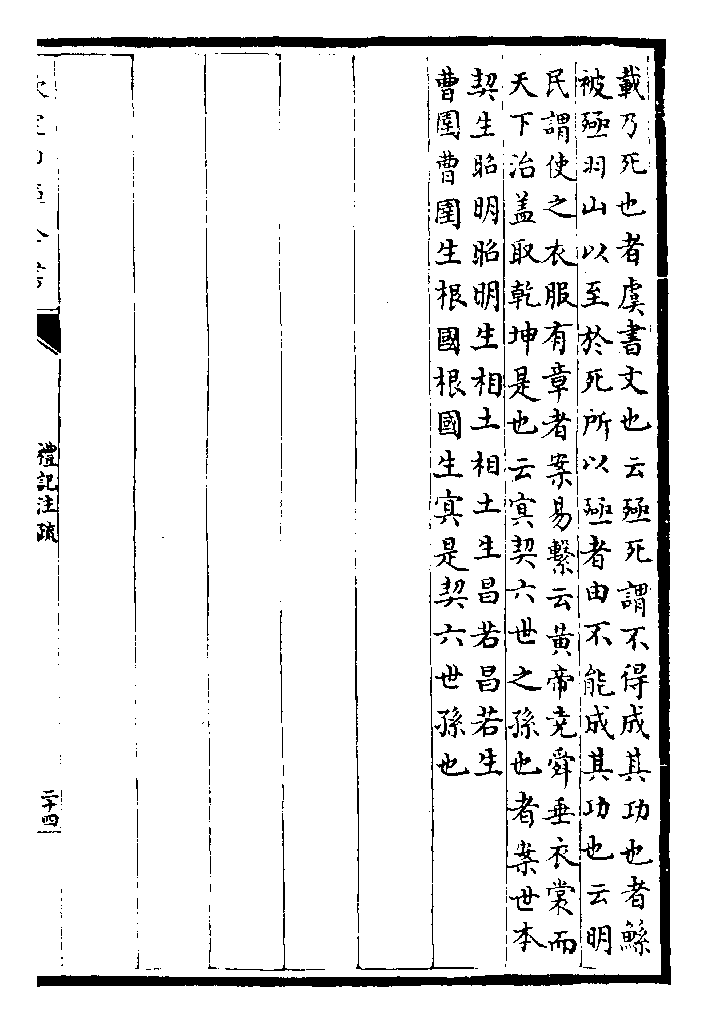 載乃死也者虞書文也云殛死謂不得成其功也者鯀
被殛羽山以至於死所以殛者由不能成其功也云明
民謂使之衣服有章者案易繫云黃帝堯舜垂衣裳而
天下治蓋取乾坤是也云㝠契六世之孫也者案世本
契生昭明昭明生相土相土生昌若昌若生
曹圉曹圉生根國根國生㝠是契六世孫也
禮記注疏
二十四